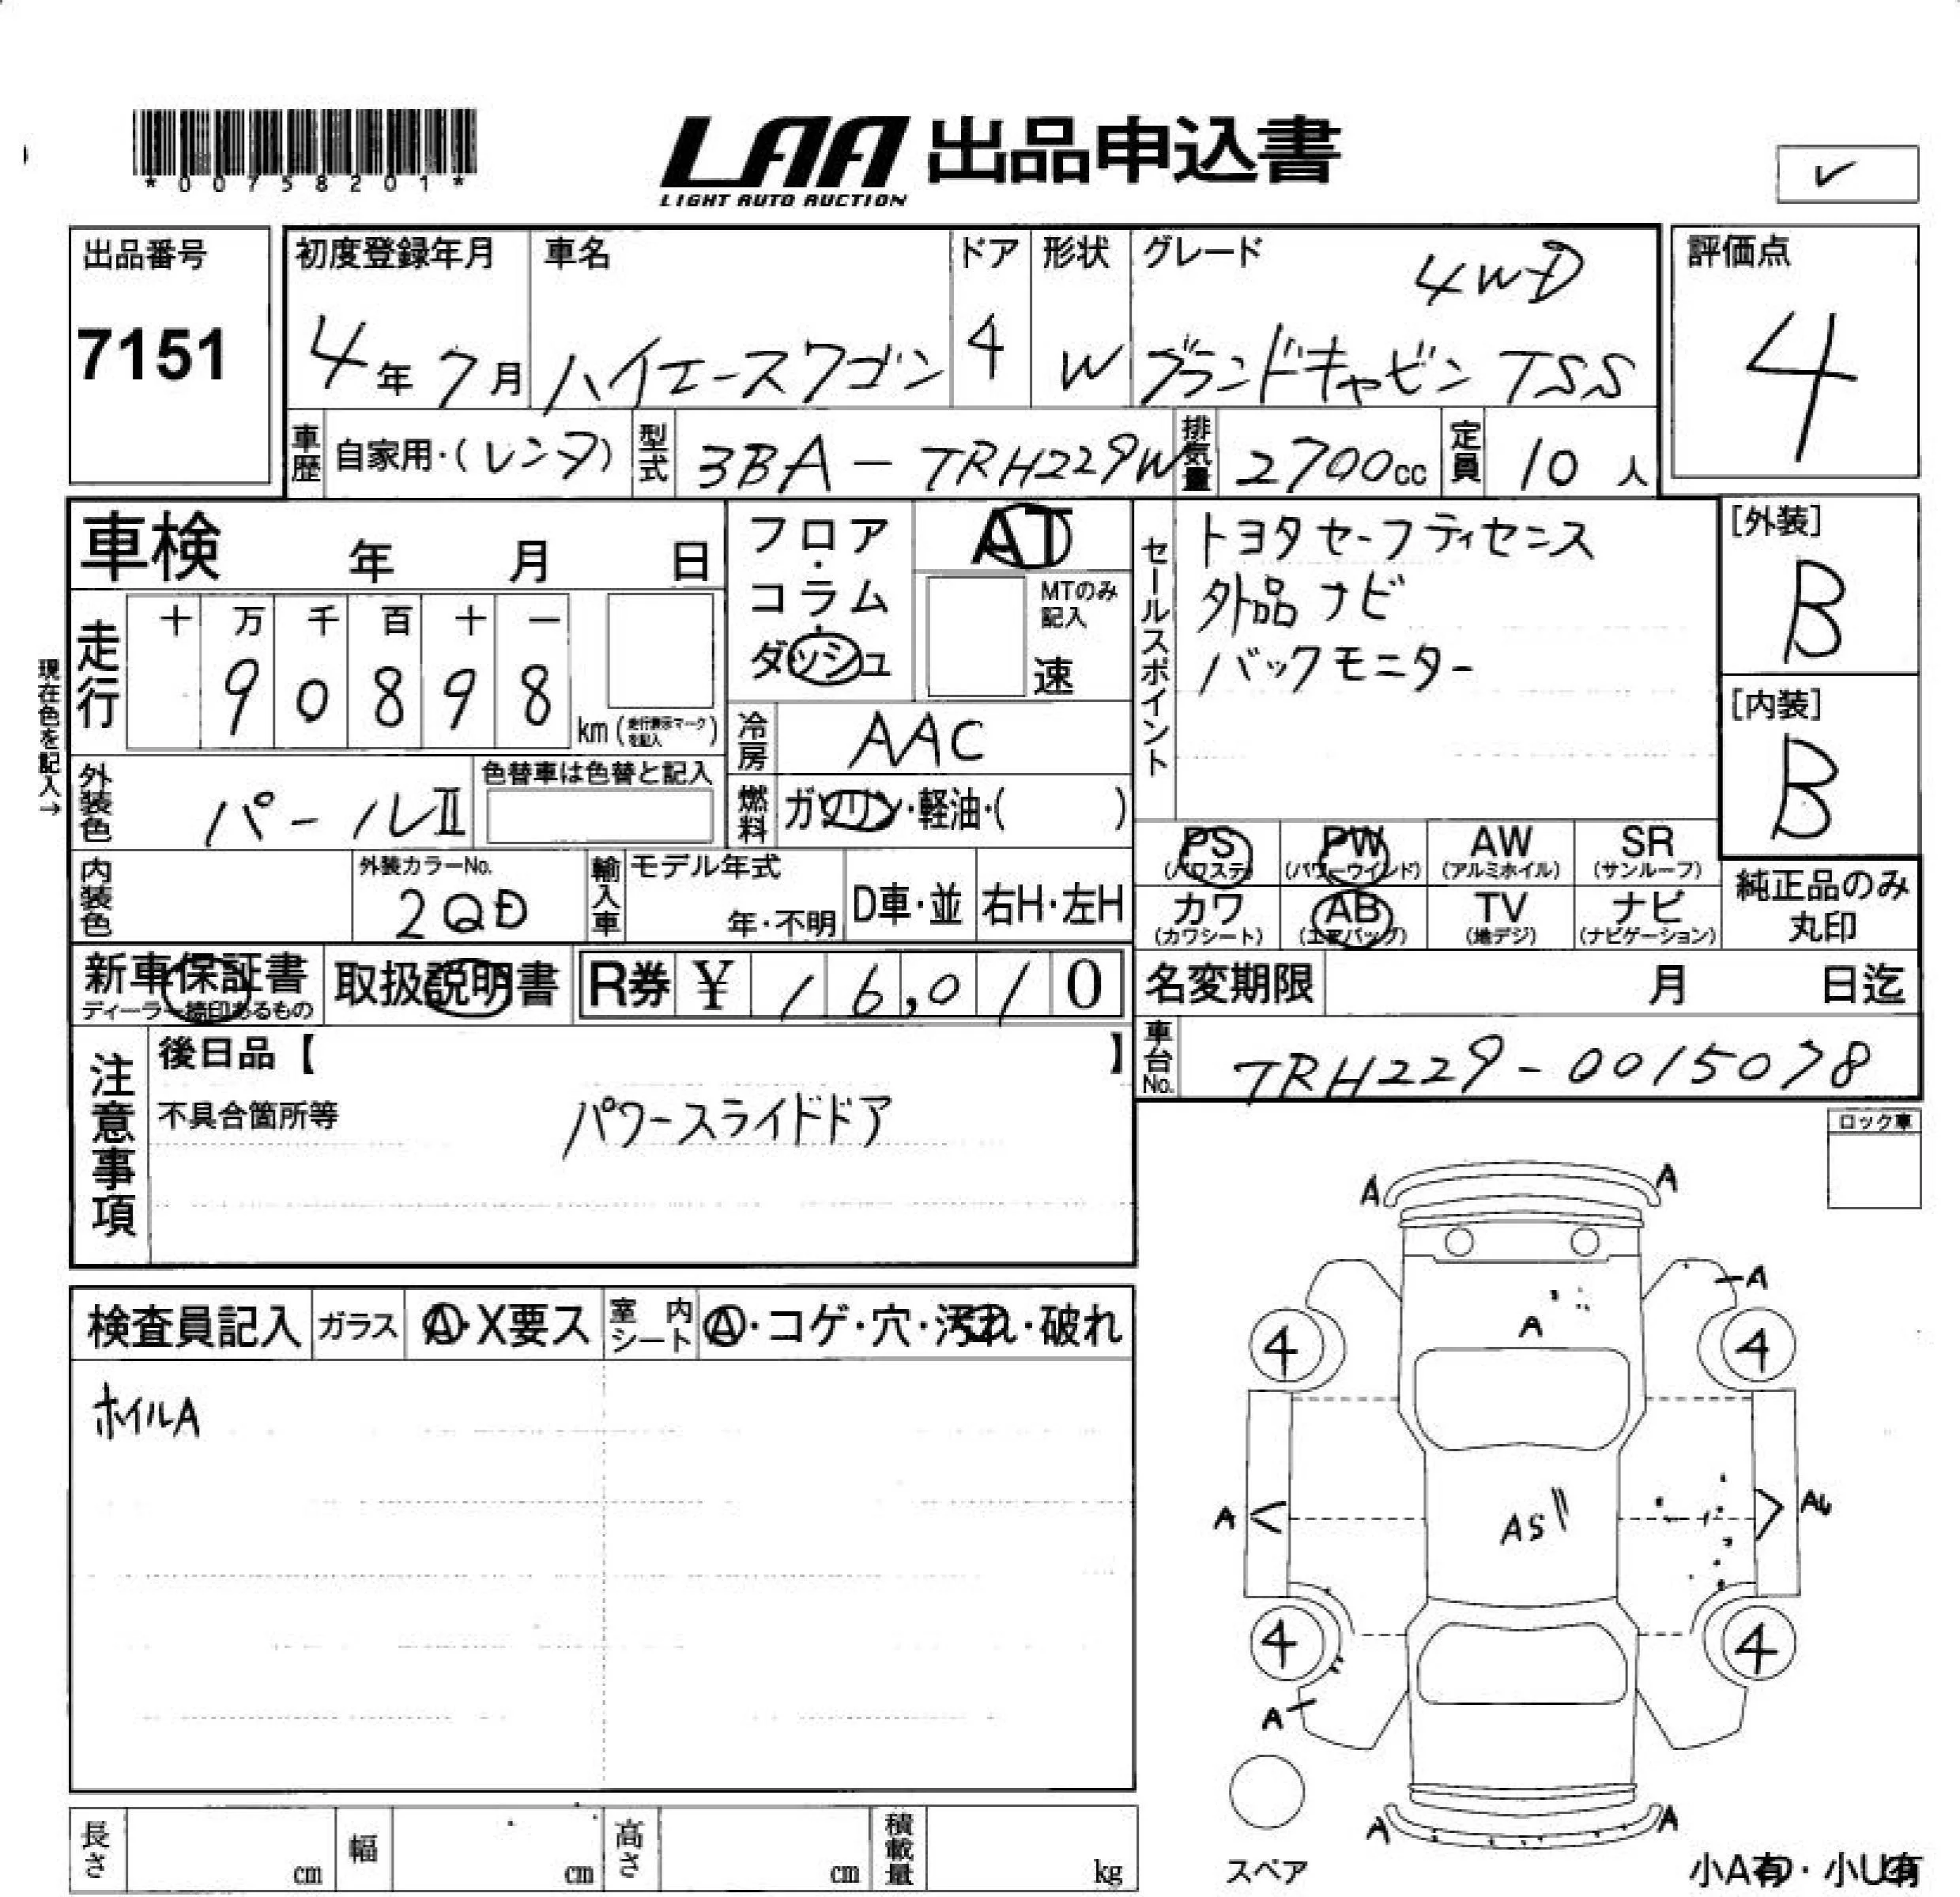 *00758201*
LAA 出品申込書
LIGHT AUTO AUCTION
✓
出品番号
7151
初度登録年月
4年7月
車名
ハイエースワゴン
ドア
4
形状
W
グレード
4WD
グランドキャビン TSS
評価点
4
車歴
自家用・(レンタ)
型式
3BA-TRH229W
排気量
2700cc
定員
10人
車検 年 月 日
現在色を記入→
走行
十 万 千 百 十 一
9 0 8 9 8
km(走行表示マークを記入)
フロア・コラム・ダッシュ
AT
MTのみ記入
速
冷房
AAC
燃料
ガソリン・軽油・( )
外装色
パールⅡ
色替車は色替と記入
内装色
外装カラーNo.
2QD
輸入車
モデル年式
年・不明
D車・並
右H・左H
セールスポイント
トヨタセーフティセンス
外品ナビ
バックモニター
[外装]
B
[内装]
B
PS
(パワステ)
PW
(パワーウインド)
AW
(アルミホイル)
SR
(サンルーフ)
カワ
(カワシート)
AB
(エアバッグ)
TV
(地デジ)
ナビ
(ナビゲーション)
純正品のみ
丸印
新車保証書
ディーラー捺印あるもの
取扱説明書
R券 ¥ 16,010
名変期限 月 日迄
車台No.
TRH229-0015078
注意事項
後日品【 】
不具合箇所等
パワースライドドア
ロック車
検査員記入
ガラス
A・X要ス
室内シート
A・コゲ・穴・汚れ・破れ
ホイルA
A A
A
A
4 4
A
AS
A
4 4
A
A A
スペア
小A有・小U有
長さ cm
幅 cm
高さ cm
積載量 kg